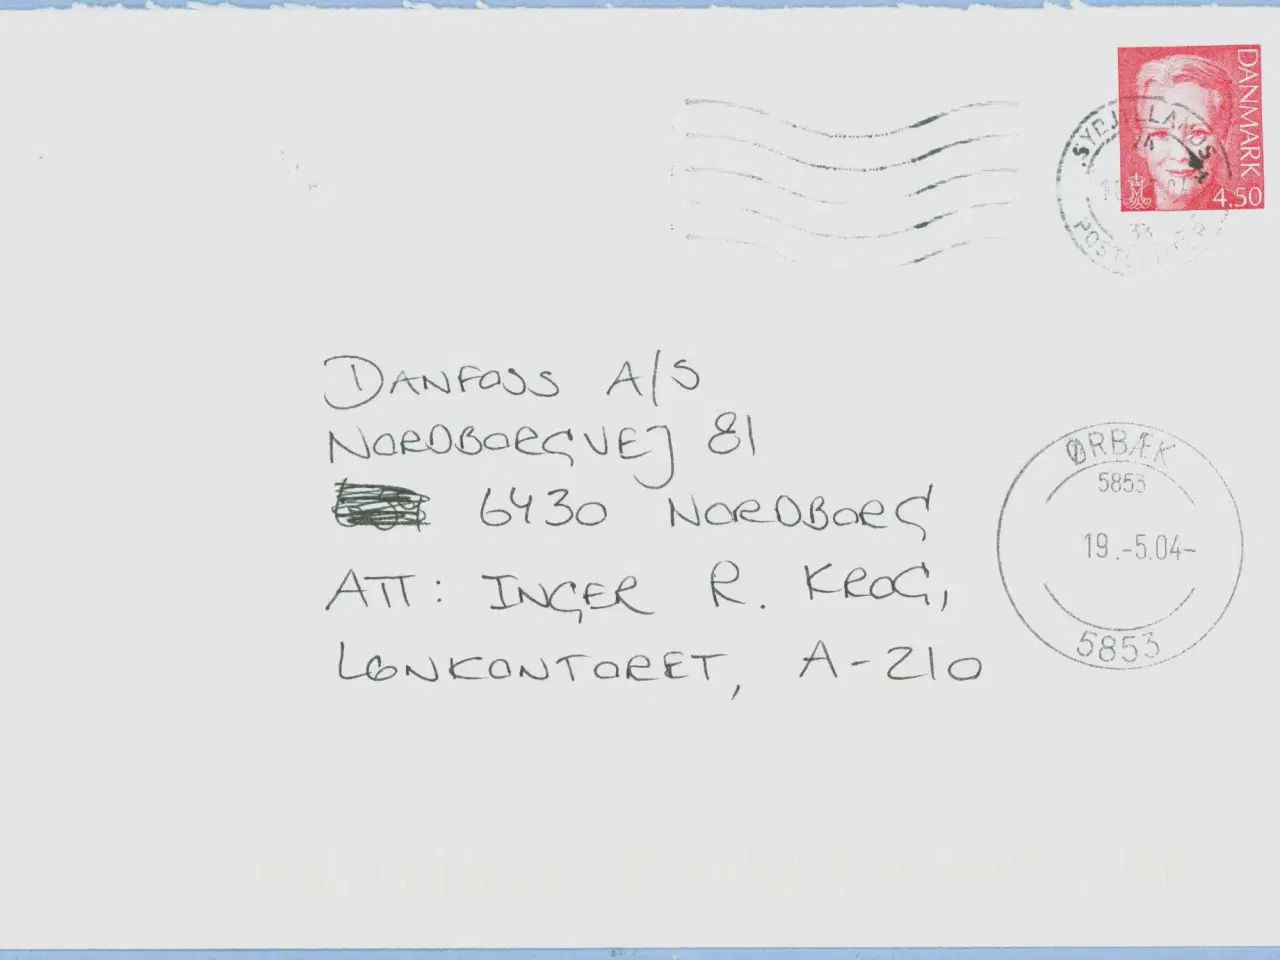 DANMARK
4.50
SYDJYLLANDS
33
DANFOSS A/S
NORDBORGVEJ 81
6430 NORDBORG
ATT: INGER R. KROG,
LØNKONTORET, A-210
ØRBÆK
5853
19.-5.04-
5853